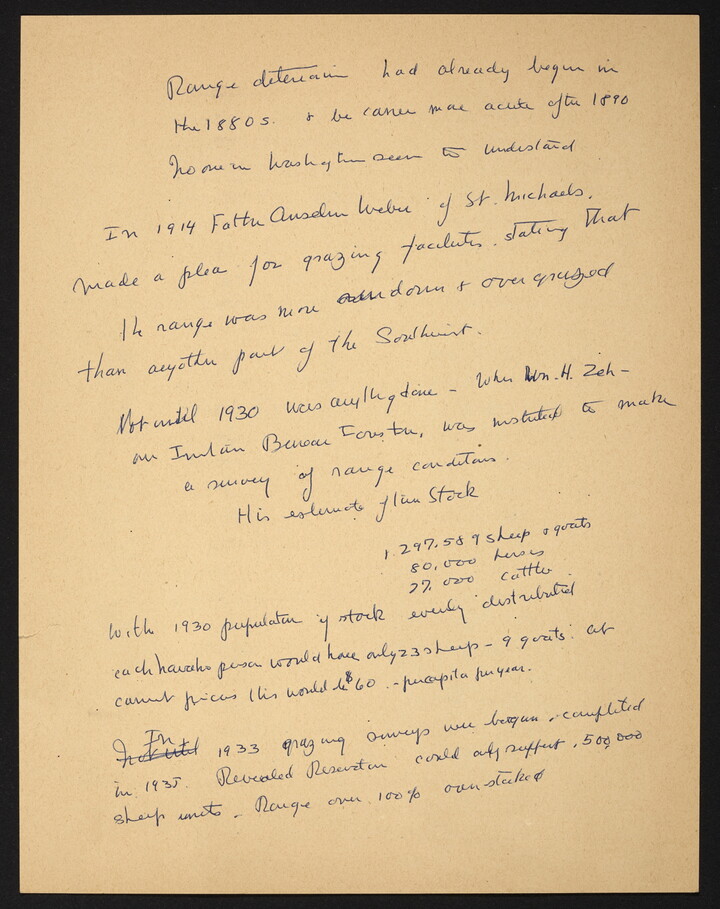 Range deterioain had already begun in
the 1880s. & be came more acute after 1890
No one in Washington seem to understand
In 1914 Father Anselm Weber of St. Michaels.
made a plea for grazing facilities. stating that
the range was more run down & over grazed
than anyother part of the Southwest.
Not until 1930 was anything done - when Wm. H. Zeh -
an Indian Bureau Forester, was instructed to make
a survey of range conditions.
His estimate of live Stock
1.297.589 sheep & goats
80,000 horses
27.000 cattle
With 1930 population of stock evenly distributed
each navaho person would have only 23 sheep - 9 goats. at
current prices this would be $60. - per capita per year.
In
Not until 1933 grazing surveys were began. - completed
in 1935. Revealed Reservation could only support. 500,000
sheep units - Range over 100% over stocked